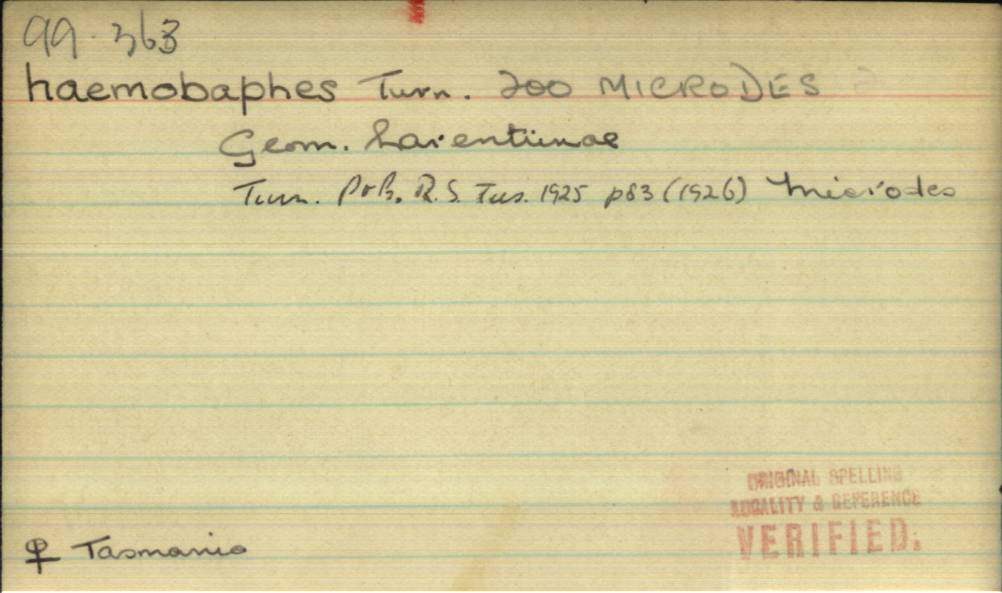 99.363
haemobaphes Turn. 200 MICRODES
Geom. Larentiinae
Turn. P&P. R.S. Tas. 1925 p83 (1926) Microdes
♀ Tasmania
ORIGINAL SPELLING
LOCALITY & REFERENCE
VERIFIED.